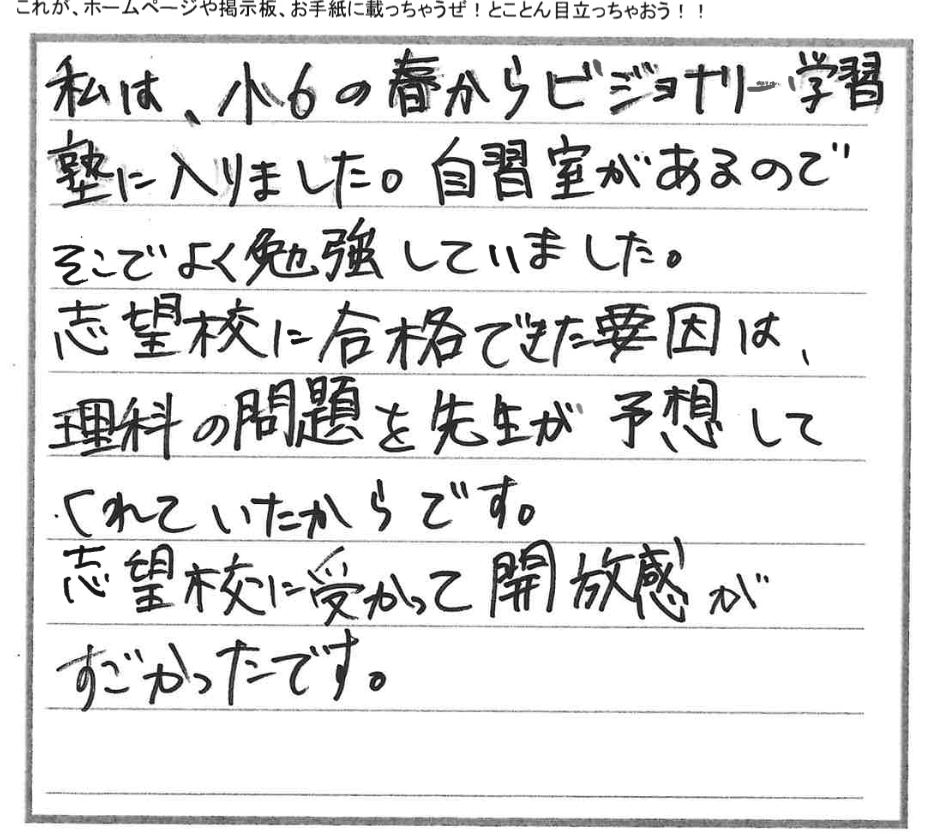 これが、ホームページや掲示板、お手紙に載っちゃうぜ！とことん目立っちゃおう！！
私は、小6の春からビジョナリー学習
塾に入りました。自習室があるので
そこでよく勉強していました。
志望校に合格できた要因は、
理科の問題を先生が予想して
くれていたからです。
志望校に受かって開放感が
すごかったです。